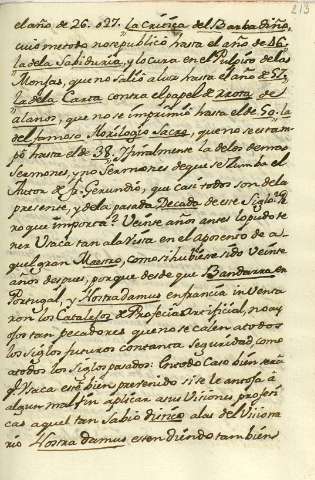 213
el año de 26. o 27. la Critica del Barbadiño,
cuio metodo no se publicó hasta el año de 46.
la de la Sabiduria, y locura en el Pulpito de las
Monjas, que no salió a luz hasta el año de 57.
la de la Carta contra el papel de
alanos, que no se imprimió hasta el de 50. la
del famoso Florilogio Sacro, que no se estam-
pó hasta el de 38. Y finalmente la de los demas
Sermones, y no Sermones de que se zumba el
Autor de fr. Gerundio, que casi todos son de la
presente, y de la pasada Decada de este Siglo: Pe-
ro que importa? Veinte años antes lo pudo te-
ner Usaca tan a la vista en el Aposento de a-
quel gran Maestro, como si hubiese sido Veinte
años despues, porque desde que Bandarra en
Portugal, y Nostradamus en francia inventa
ron los Catalejos de Profecia Artificial, no ay
ojos tan pecadores que no se calen a todos
los Siglos futuros con tanta seguridad, como
a todos los Siglos pasados: En todo Caso bien será
q. Usaca esté bien prevenido si se le antoja á
algun malsin aplicar a sus Visiones, profeti-
cas aquel tan Sabio distico a las del Visiona
rio Nostradamus estendiendo tambien